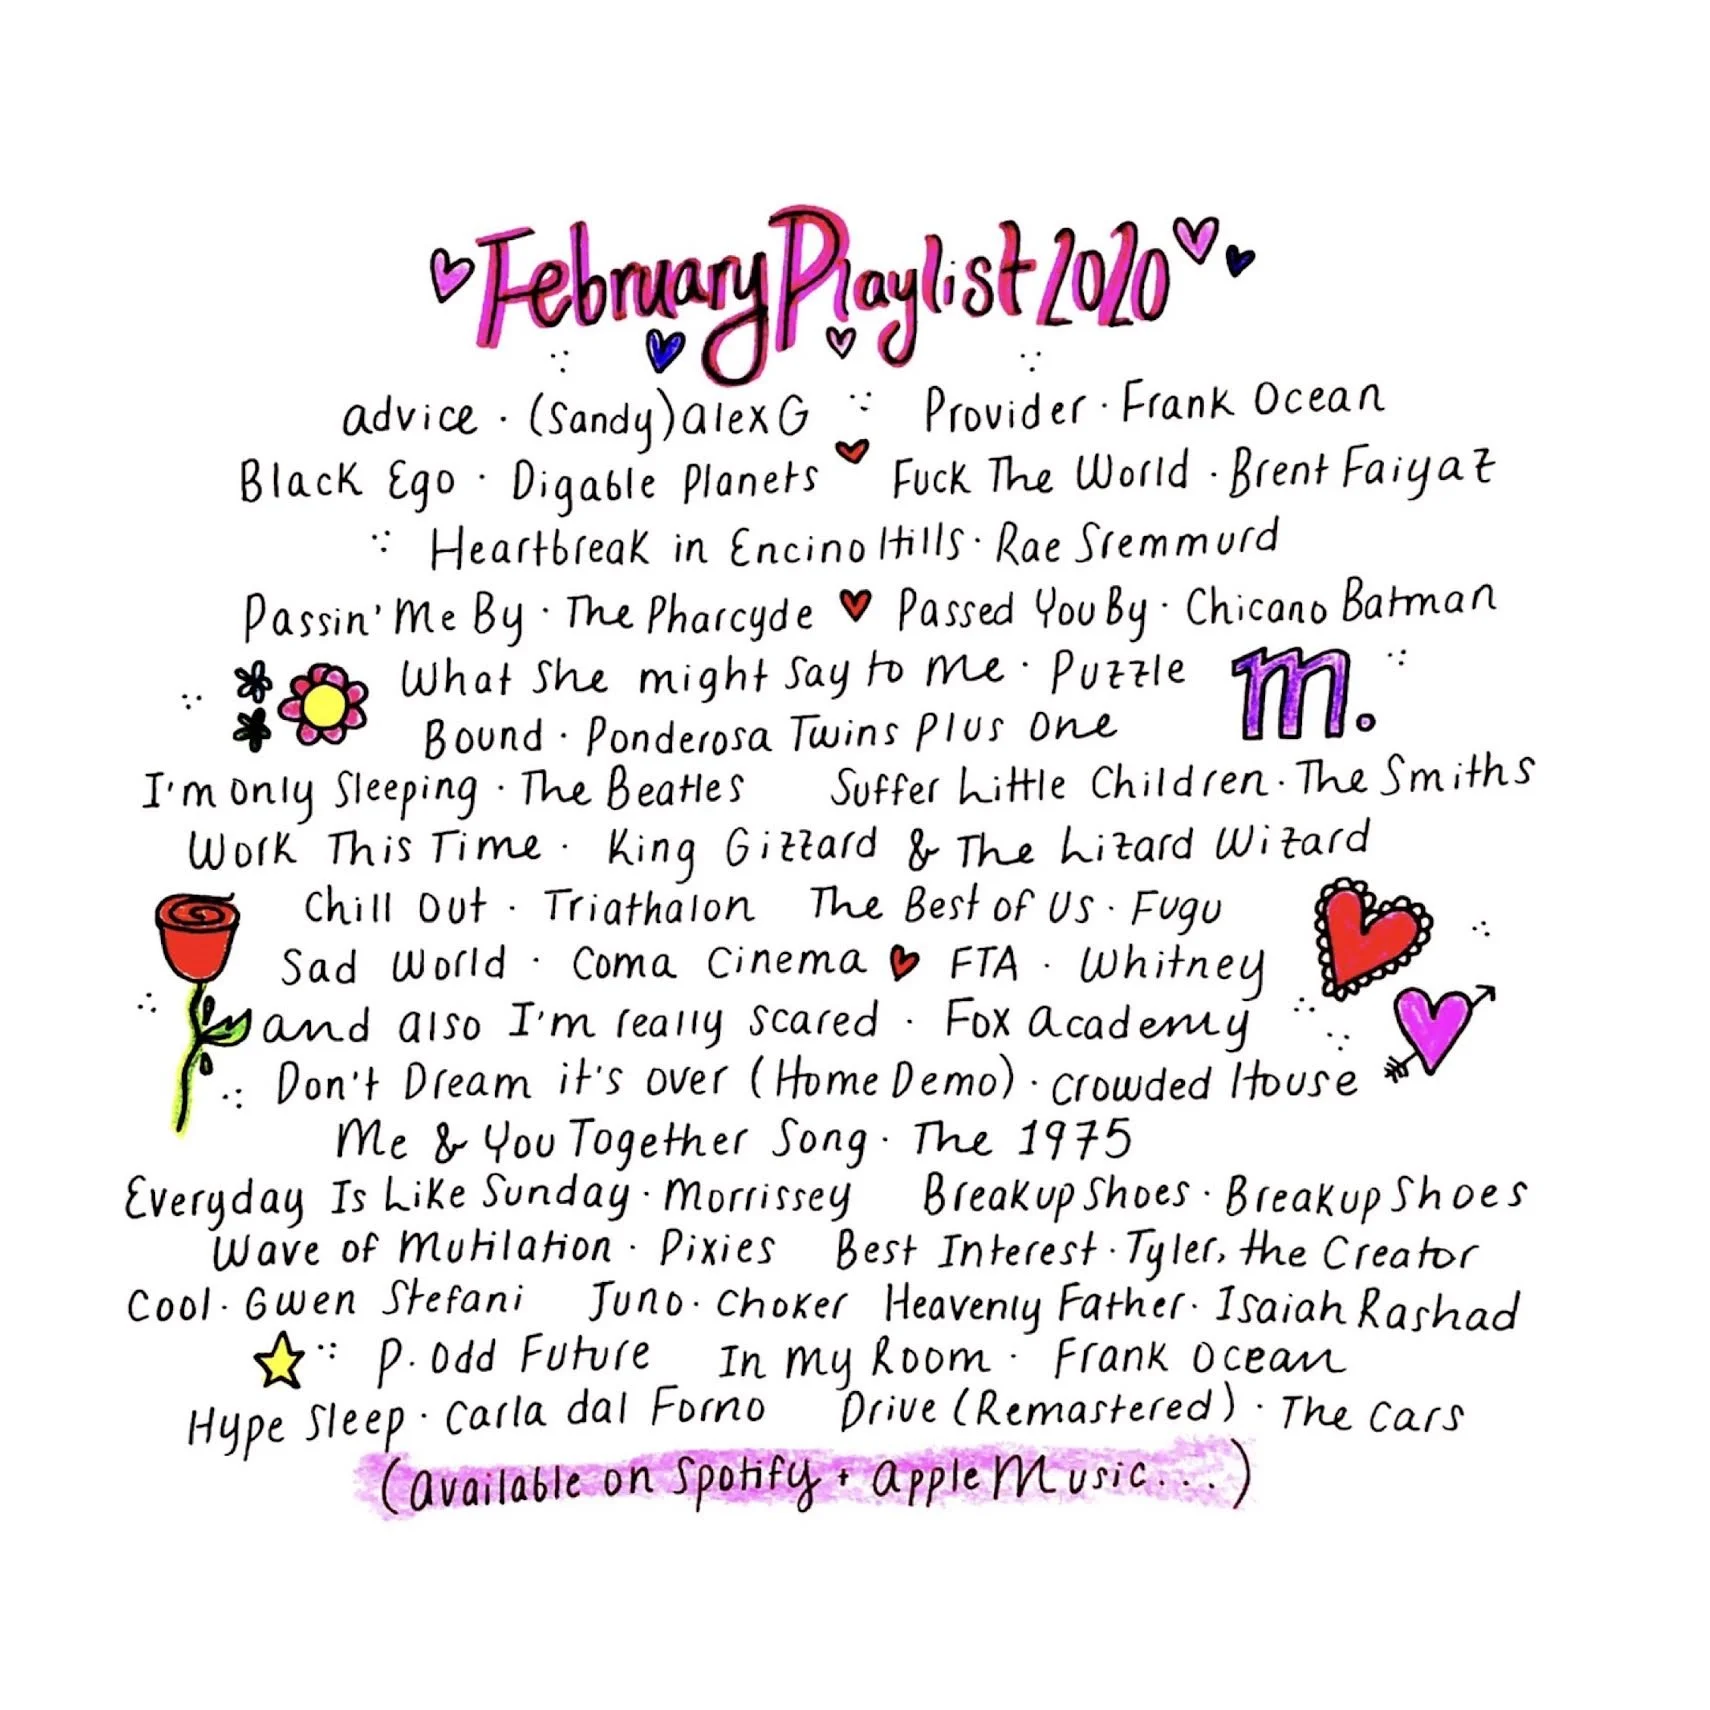 February Playlist 2020
advice · (Sandy) alex G Provider · Frank Ocean
Black Ego · Digable Planets Fuck The World · Brent Faiyaz
Heartbreak in Encino Hills · Rae Sremmurd
Passin' Me By · The Pharcyde Passed You By · Chicano Batman
What She might Say to me · Puzzle
m.
Bound · Ponderosa Twins Plus One
I'm only Sleeping · The Beatles Suffer Little Children · The Smiths
Work This Time · King Gizzard & The Lizard Wizard
Chill Out · Triathalon The Best of Us · Fugu
Sad World · Coma Cinema FTA · Whitney
and also I'm really scared · Fox academy
Don't Dream it's over (Home Demo) · Crowded House
Me & You Together Song · The 1975
Everyday Is Like Sunday · Morrissey Breakup Shoes · Breakup Shoes
Wave of Mutilation · Pixies Best Interest · Tyler, the Creator
Cool · Gwen Stefani Juno · Choker Heavenly Father · Isaiah Rashad
P. Odd Future In my Room · Frank Ocean
Hype Sleep · Carla dal Forno Drive (Remastered) · The Cars
(available on Spotify + apple Music...)